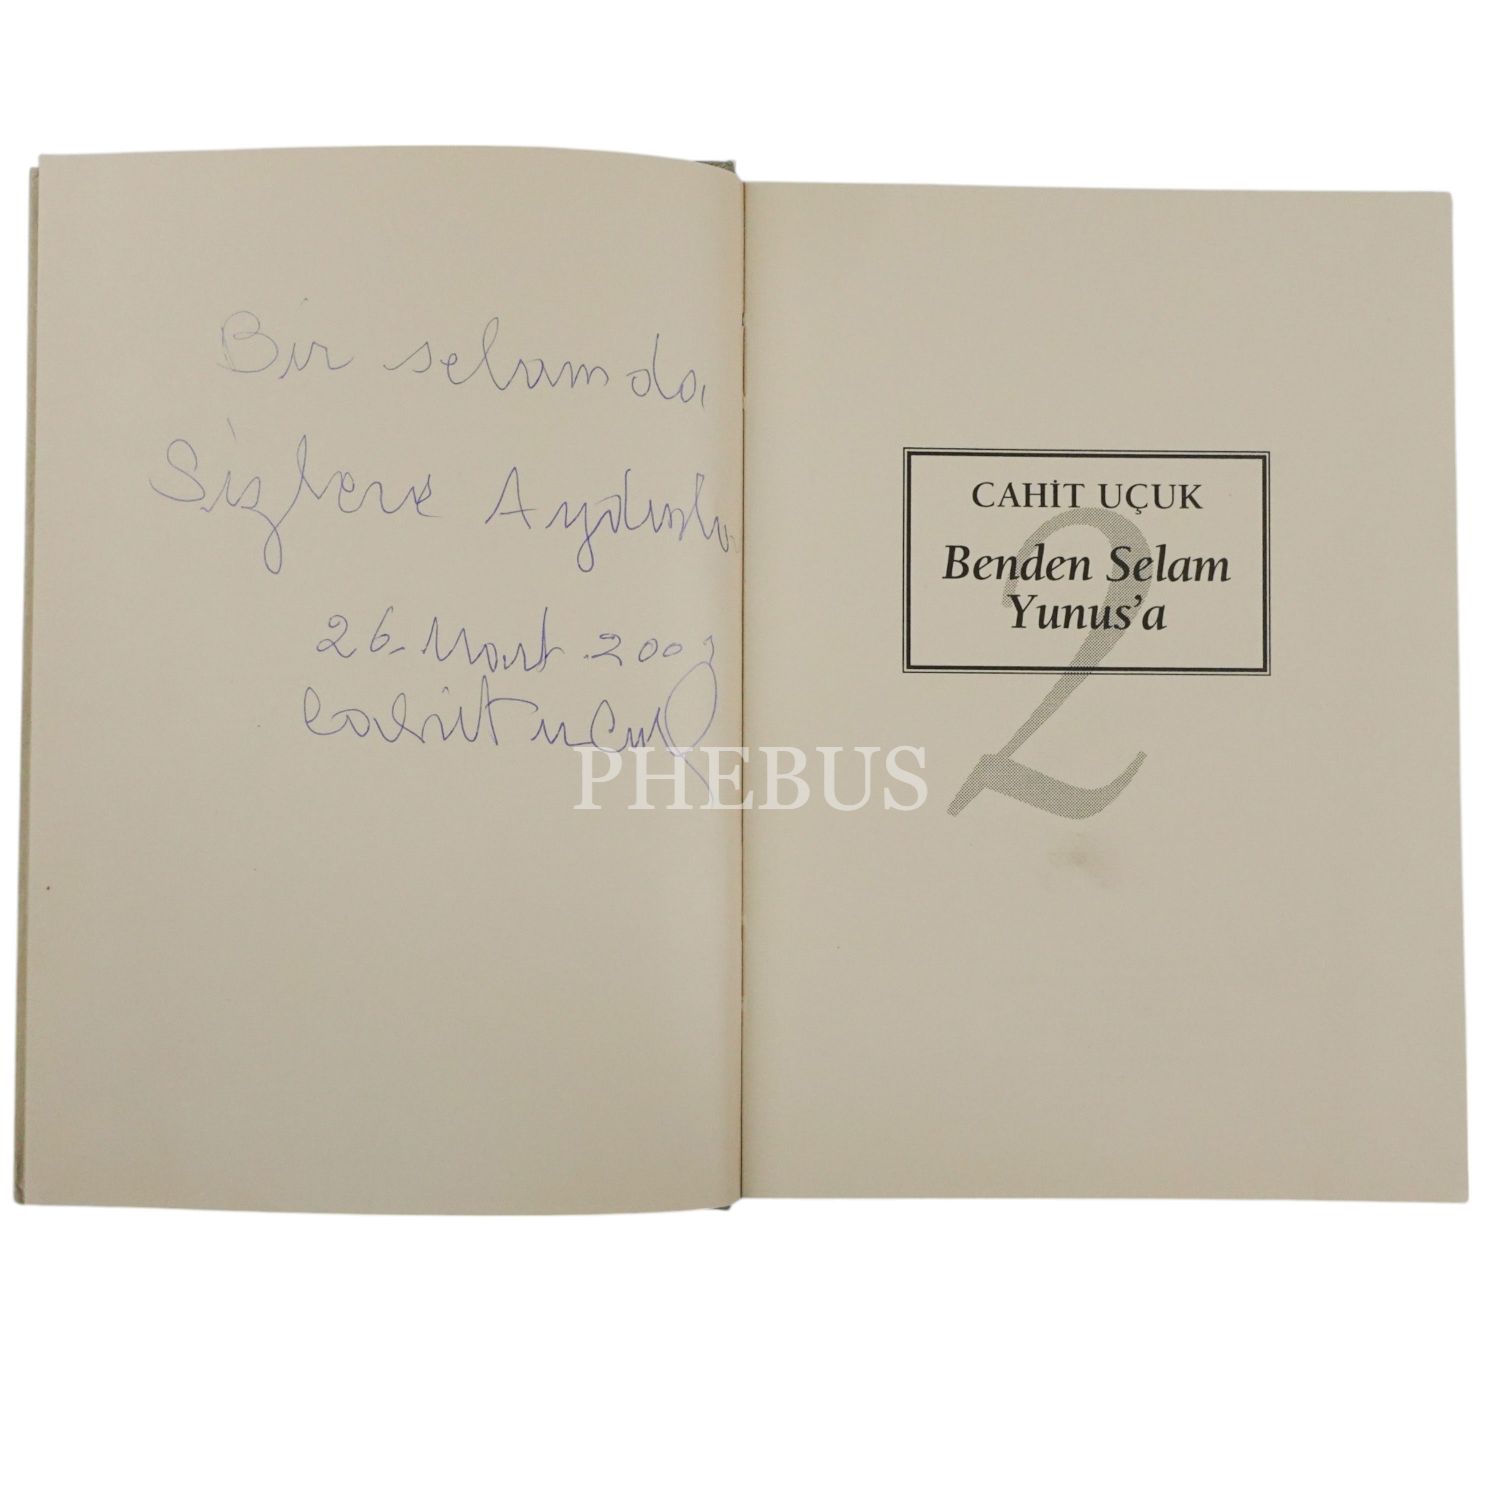 Bir selam da
Sizlere Aydınlar
26 Mart 2003
Cahit Uçuk
CAHİT UÇUK
2
Benden Selam
Yunus'a
PHEBUS